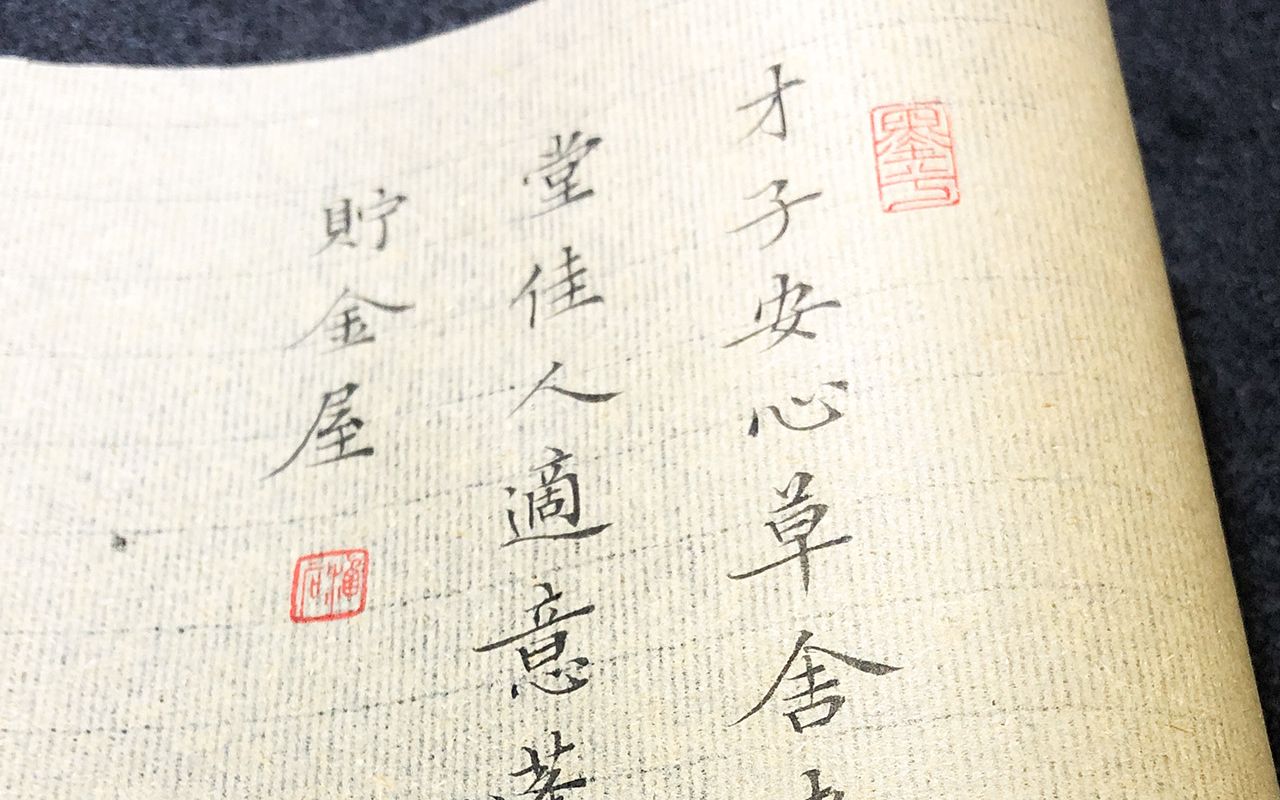 才子安心草舍
堂佳人適意
貯金屋